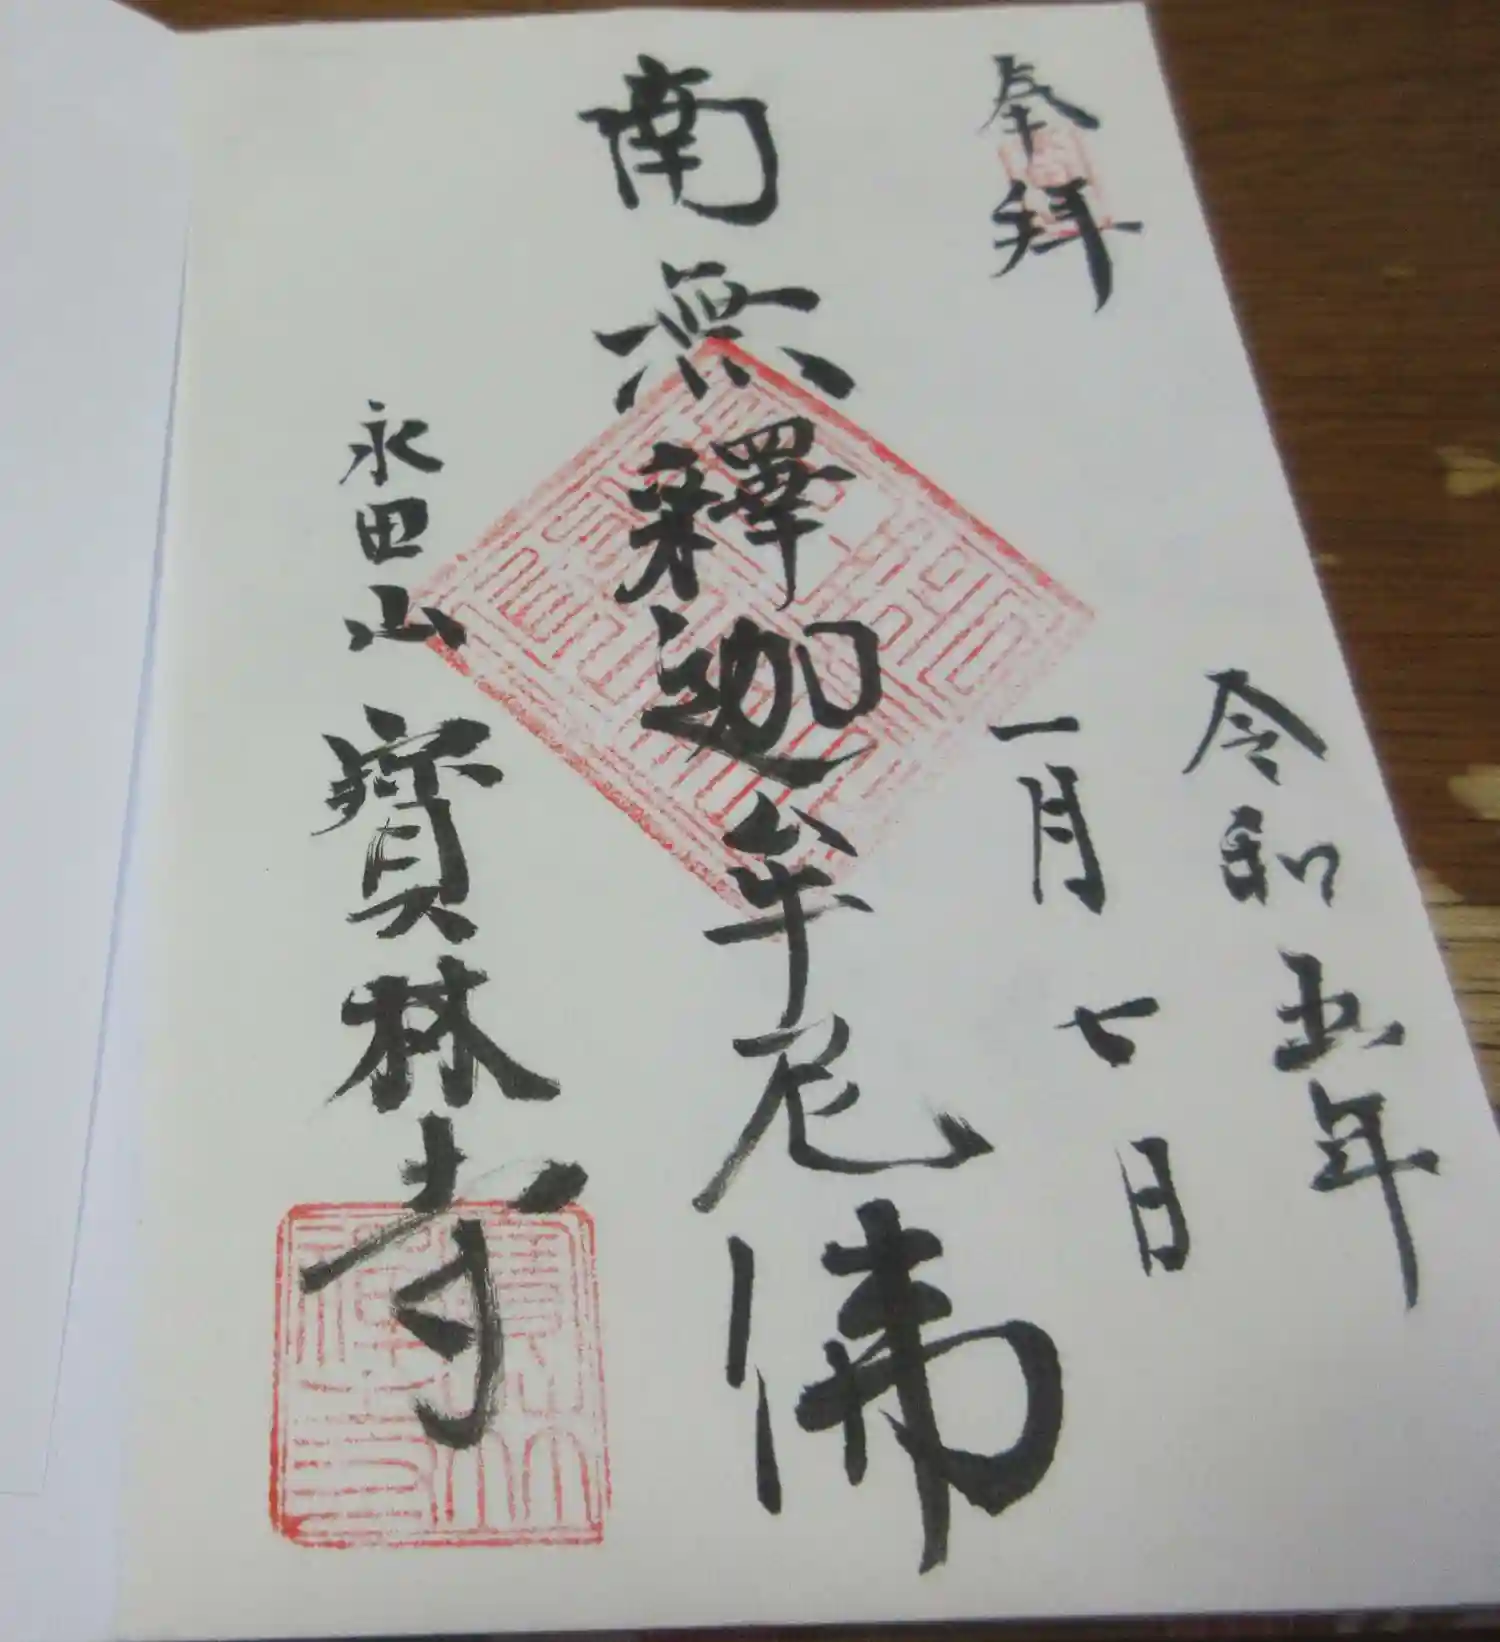 奉拜
令和五年
一月七日
南無釋迦牟尼佛
永田山
寶林寺